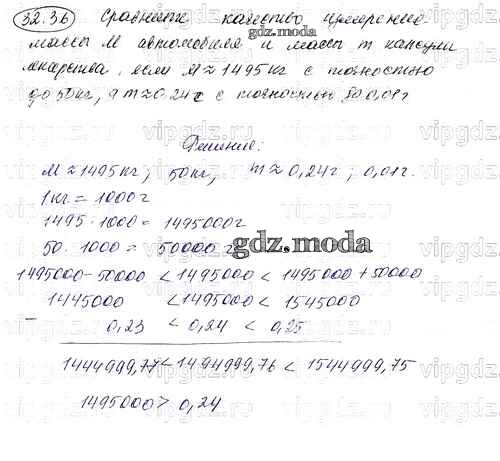 32.36 Сравните качество измерений
массы M автомобиля и массы m капсулы
лекарства, если M ≈ 1495 кг с точностью
до 50 кг, а m ≈ 0,24 г с точностью до 0,01 г
Решение:
M ≈ 1495 кг; 50 кг, m ≈ 0,24 г; 0,01 г.
1 кг = 1000 г
1495 · 1000 = 1495000 г
50 · 1000 = 50000 г
gdz.moda
1495000 - 50000 < 1495000 < 1495000 + 50000
1445000 < 1495000 < 1545000
- 0,23 < 0,24 < 0,25
1444999,77 < 1494999,76 < 1544999,75
1495000 > 0,24
gdz.moda